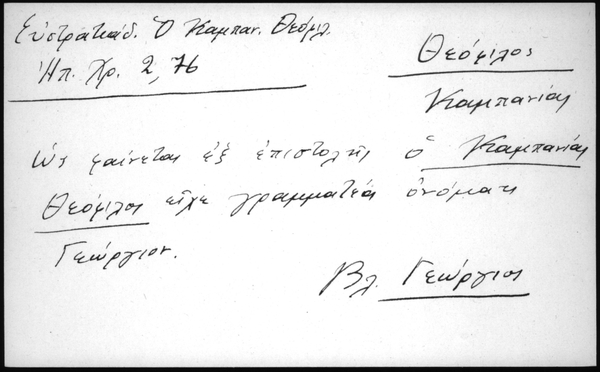 Εὐστρατιάδ. Ὁ Καμπαν. Θεόφιλ.
Ἠπ. Χρ. 2, 76
Θεόφιλος
Καμπανίας
Ὡς φαίνεται ἐξ ἐπιστολῆς ὁ Καμπανίας
Θεόφιλος εἶχε γραμματέα ὀνόματι
Γεώργιον.
Βλ. Γεώργιος